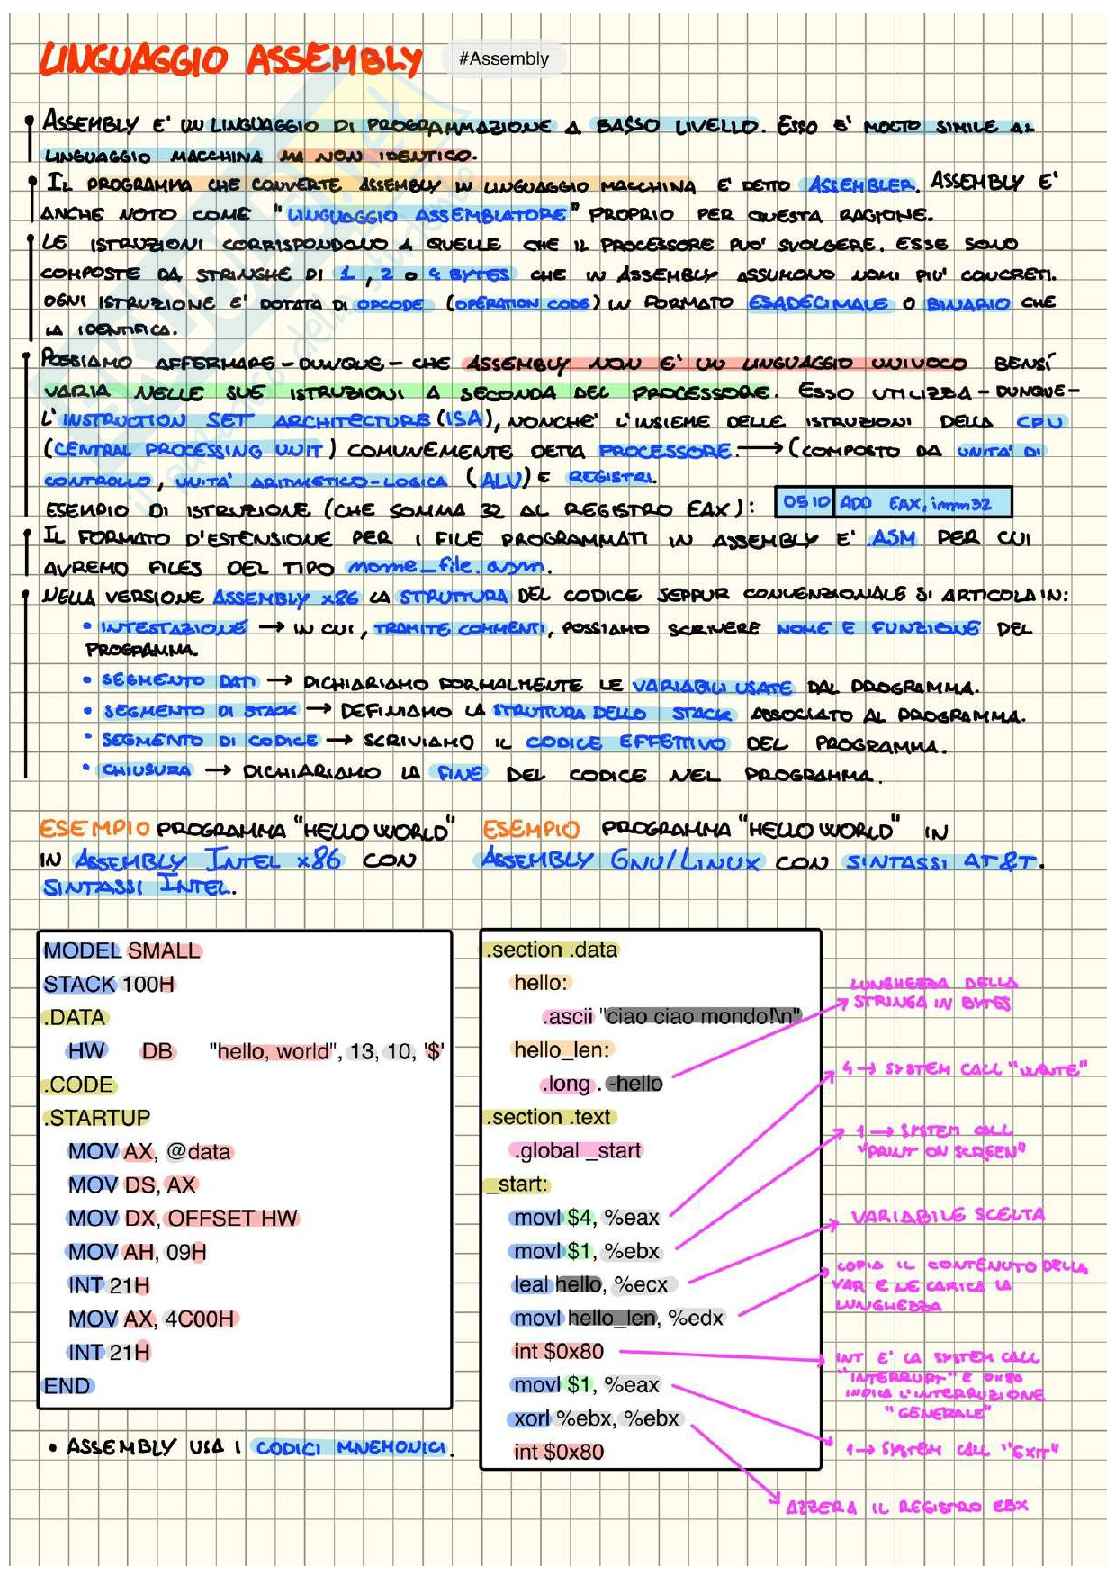 LINGUAGGIO ASSEMBLY #Assembly
ASSEMBLY E' UN LINGUAGGIO DI PROGRAMMAZIONE A BASSO LIVELLO. ESSO E' MOLTO SIMILE AL
LINGUAGGIO MACCHINA MA NON IDENTICO.
IL PROGRAMMA CHE CONVERTE ASSEMBLY IN LINGUAGGIO MACCHINA E' DETTO ASSEMBLER. ASSEMBLY E'
ANCHE NOTO COME "LINGUAGGIO ASSEMBLATORE" PROPRIO PER QUESTA RAGIONE.
LE ISTRUZIONI CORRISPONDONO A QUELLE CHE IL PROCESSORE PUO' SVOLGERE. ESSE SONO
COMPOSTE DA STRINGHE DI 1, 2 O 4 BYTES CHE IN ASSEMBLY ASSUMONO NOMI PIU' CONCRETI.
OGNI ISTRUZIONE E' DOTATA DI OPCODE (OPERATION CODE) IN FORMATO ESADECIMALE O BINARIO CHE
LA IDENTIFICA.
POSSIAMO AFFERMARE - DUNQUE - CHE ASSEMBLY NON E' UN LINGUAGGIO UNIVOCO BENSÍ
VARIA NELLE SUE ISTRUZIONI A SECONDA DEL PROCESSORE. ESSO UTILIZZA - DUNQUE -
L'INSTRUCTION SET ARCHITECTURE (ISA), NONCHE' L'INSIEME DELLE ISTRUZIONI DELLA CPU
(CENTRAL PROCESSING UNIT) COMUNEMENTE DETTA PROCESSORE. → (COMPOSTO DA UNITA' DI
CONTROLLO, UNITA' ARITMETICO-LOGICA (ALU) E REGISTRI.
ESEMPIO DI ISTRUZIONE (CHE SOMMA 32 AL REGISTRO EAX): 0510 ADD EAX, imm32
IL FORMATO D'ESTENSIONE PER I FILE PROGRAMMATI IN ASSEMBLY E' .ASM PER CUI
AVREMO FILES DEL TIPO nome_file.asm.
NELLA VERSIONE ASSEMBLY x86 LA STRUTTURA DEL CODICE SEPPUR CONVENZIONALE SI ARTICOLA IN:
• INTESTAZIONE → IN CUI, TRAMITE COMMENTI, POSSIAMO SCRIVERE NOME E FUNZIONE DEL
PROGRAMMA.
• SEGMENTO DATI → DICHIARIAMO FORMALMENTE LE VARIABILI USATE DAL PROGRAMMA.
• SEGMENTO DI STACK → DEFINIAMO LA STRUTTURA DELLO STACK ASSOCIATO AL PROGRAMMA.
• SEGMENTO DI CODICE → SCRIVIAMO IL CODICE EFFETTIVO DEL PROGRAMMA.
• CHIUSURA → DICHIARIAMO LA FINE DEL CODICE NEL PROGRAMMA.
ESEMPIO PROGRAMMA "HELLO WORLD"
IN ASSEMBLY INTEL x86 CON
SINTASSI INTEL.
MODEL SMALL
STACK 100H
.DATA
HW DB "hello, world", 13, 10, '$'
.CODE
.STARTUP
MOV AX, @data
MOV DS, AX
MOV DX, OFFSET HW
MOV AH, 09H
INT 21H
MOV AX, 4C00H
INT 21H
END
• ASSEMBLY USA I CODICI MNEMONICI.
ESEMPIO PROGRAMMA "HELLO WORLD" IN
ASSEMBLY GNU/LINUX CON SINTASSI AT&T.
.section .data
hello:
.ascii "ciao ciao mondo!\n"
hello_len:
.long . -hello
.section .text
.global _start
_start:
movl $4, %eax
movl $1, %ebx
leal hello, %ecx
movl hello_len, %edx
int $0x80
movl $1, %eax
xorl %ebx, %ebx
int $0x80
LUNGHEZZA DELLA
STRINGA IN BYTES
4 → SYSTEM CALL "WRITE"
1 → SYSTEM CALL
"PRINT ON SCREEN"
VARIABILE SCELTA
COPIA IL CONTENUTO DELLA
VAR E NE CARICA LA
LUNGHEZZA
INT E' LA SYSTEM CALL
"INTERRUPT" E 0x80
INDICA L'INTERRUZIONE
"GENERALE"
1 → SYSTEM CALL "EXIT"
AZZERA IL REGISTRO EBX